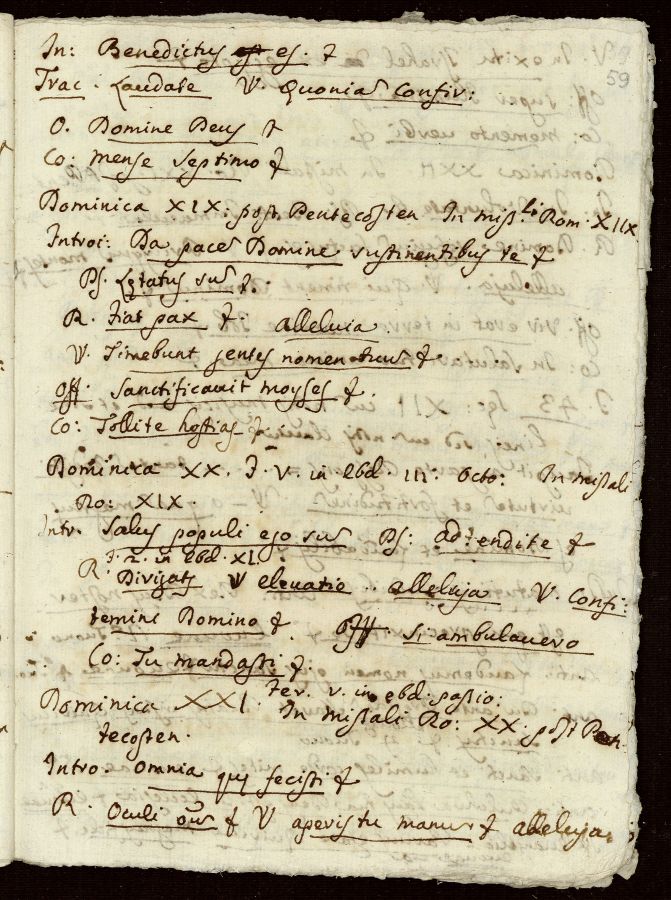 59
In: Benedictus es. &
Trac. Laudate V. Quonia Confir:
O. Domine Deus &
Co: Mense Septimo &
Dominica XIX. post Pentecosten In miss.li Rom. XIIX
Introi: Da pace Domine sustinentibus te &
Ps. Lętatus su &.
R. Fiat pax &. alleluia
V. Timebunt gentes nomen tuu &.
Off. Sanctificauit moyses &.
Co: Tollite hostias &.
Dominixa XX. F. V. in ebd. III. Octo: In missali
Ro: XIX.
Intr. Salus populi ego su Ps: adtendite &
F. 2. in ebd. XL.
R. Dirigat V eleuatio. alleluja V. Confi:
temini Domino & Off. Si ambulauero
Co: Tu mandasti &.
Dominica XXI. Fer. V. in ebd. passio:
In missali Ro: XX. post Pen
tecosten.
Intro. Omnia quę fecisti &
R. Oculi & V aperis tu manu & alleluja.